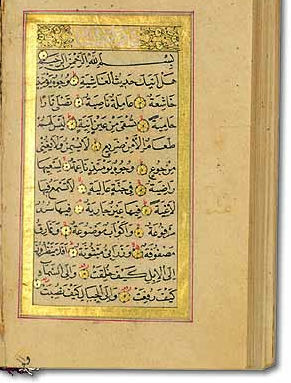 بسم الله الرحمن الرحيم
هل اتيك حديث الغاشية وجوه يومئذ
خاشعة عاملة ناصبة تصلى نارا
حامية تسقى من عين انية ليس لهم
طعام الا من ضريع لا يسمن ولا يغنى
من جوع وجوه يومئذ ناعمة لسعيها
راضية فى جنة عالية لا تسمع فيها
لاغية فيها عين جارية فيها سرر
مرفوعة واكواب موضوعة ونمارق
مصفوفة وزرابى مبثوثة افلا ينظرون
الى الابل كيف خلقت والى السماء
كيف رفعت والى الجبال كيف نصبت